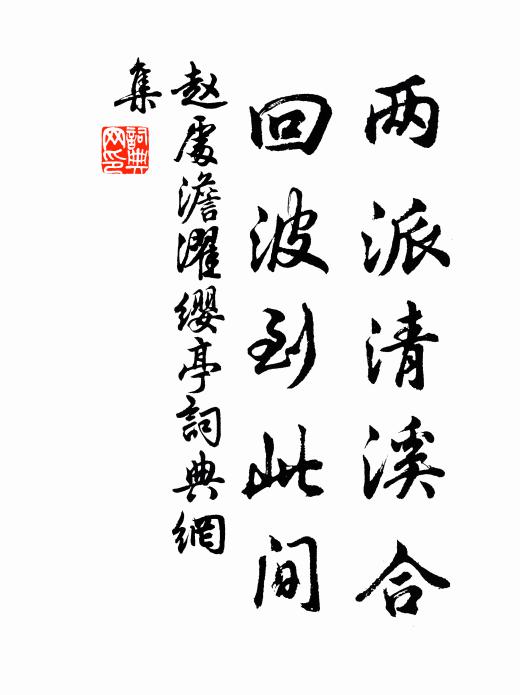 两派清溪合
回波到此间
赵處澹濯缨亭詞典網
集
詞典網印